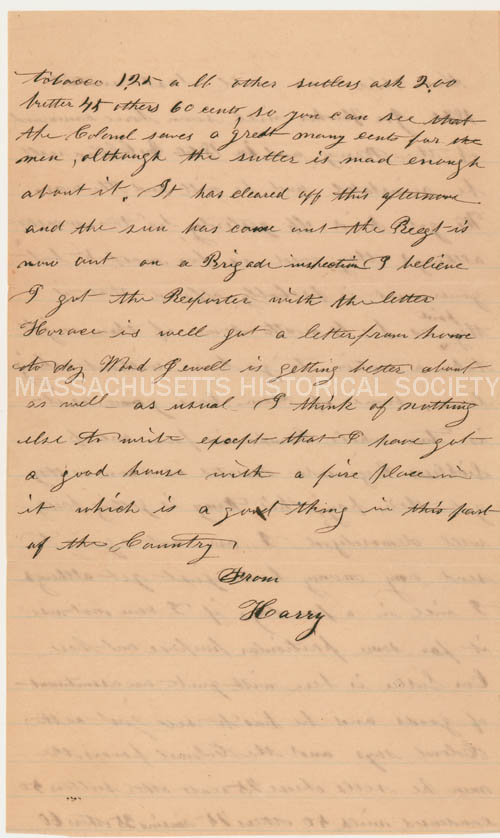 tobacco 1,25 a lb other sutlers ask 2.00
butter 45 others 60 cents, so you can see that
the Colonel saves a great many cents for the
men, although the sutler is mad enough
about it. It has cleared off this afternoon
and the sun has come out the Regt is
now out on a Brigade inspection I believe
I got the Reporter with the letter
Horace is well got a letter from home
to day Wood Jewell is getting better about
MASSACHUSETTS HISTORICAL SOCIETY
as well as usual I think of nothing
else to write except that I have got
a good house with a fire place in
it which is a good thing in this part
of the Country
From
Harry